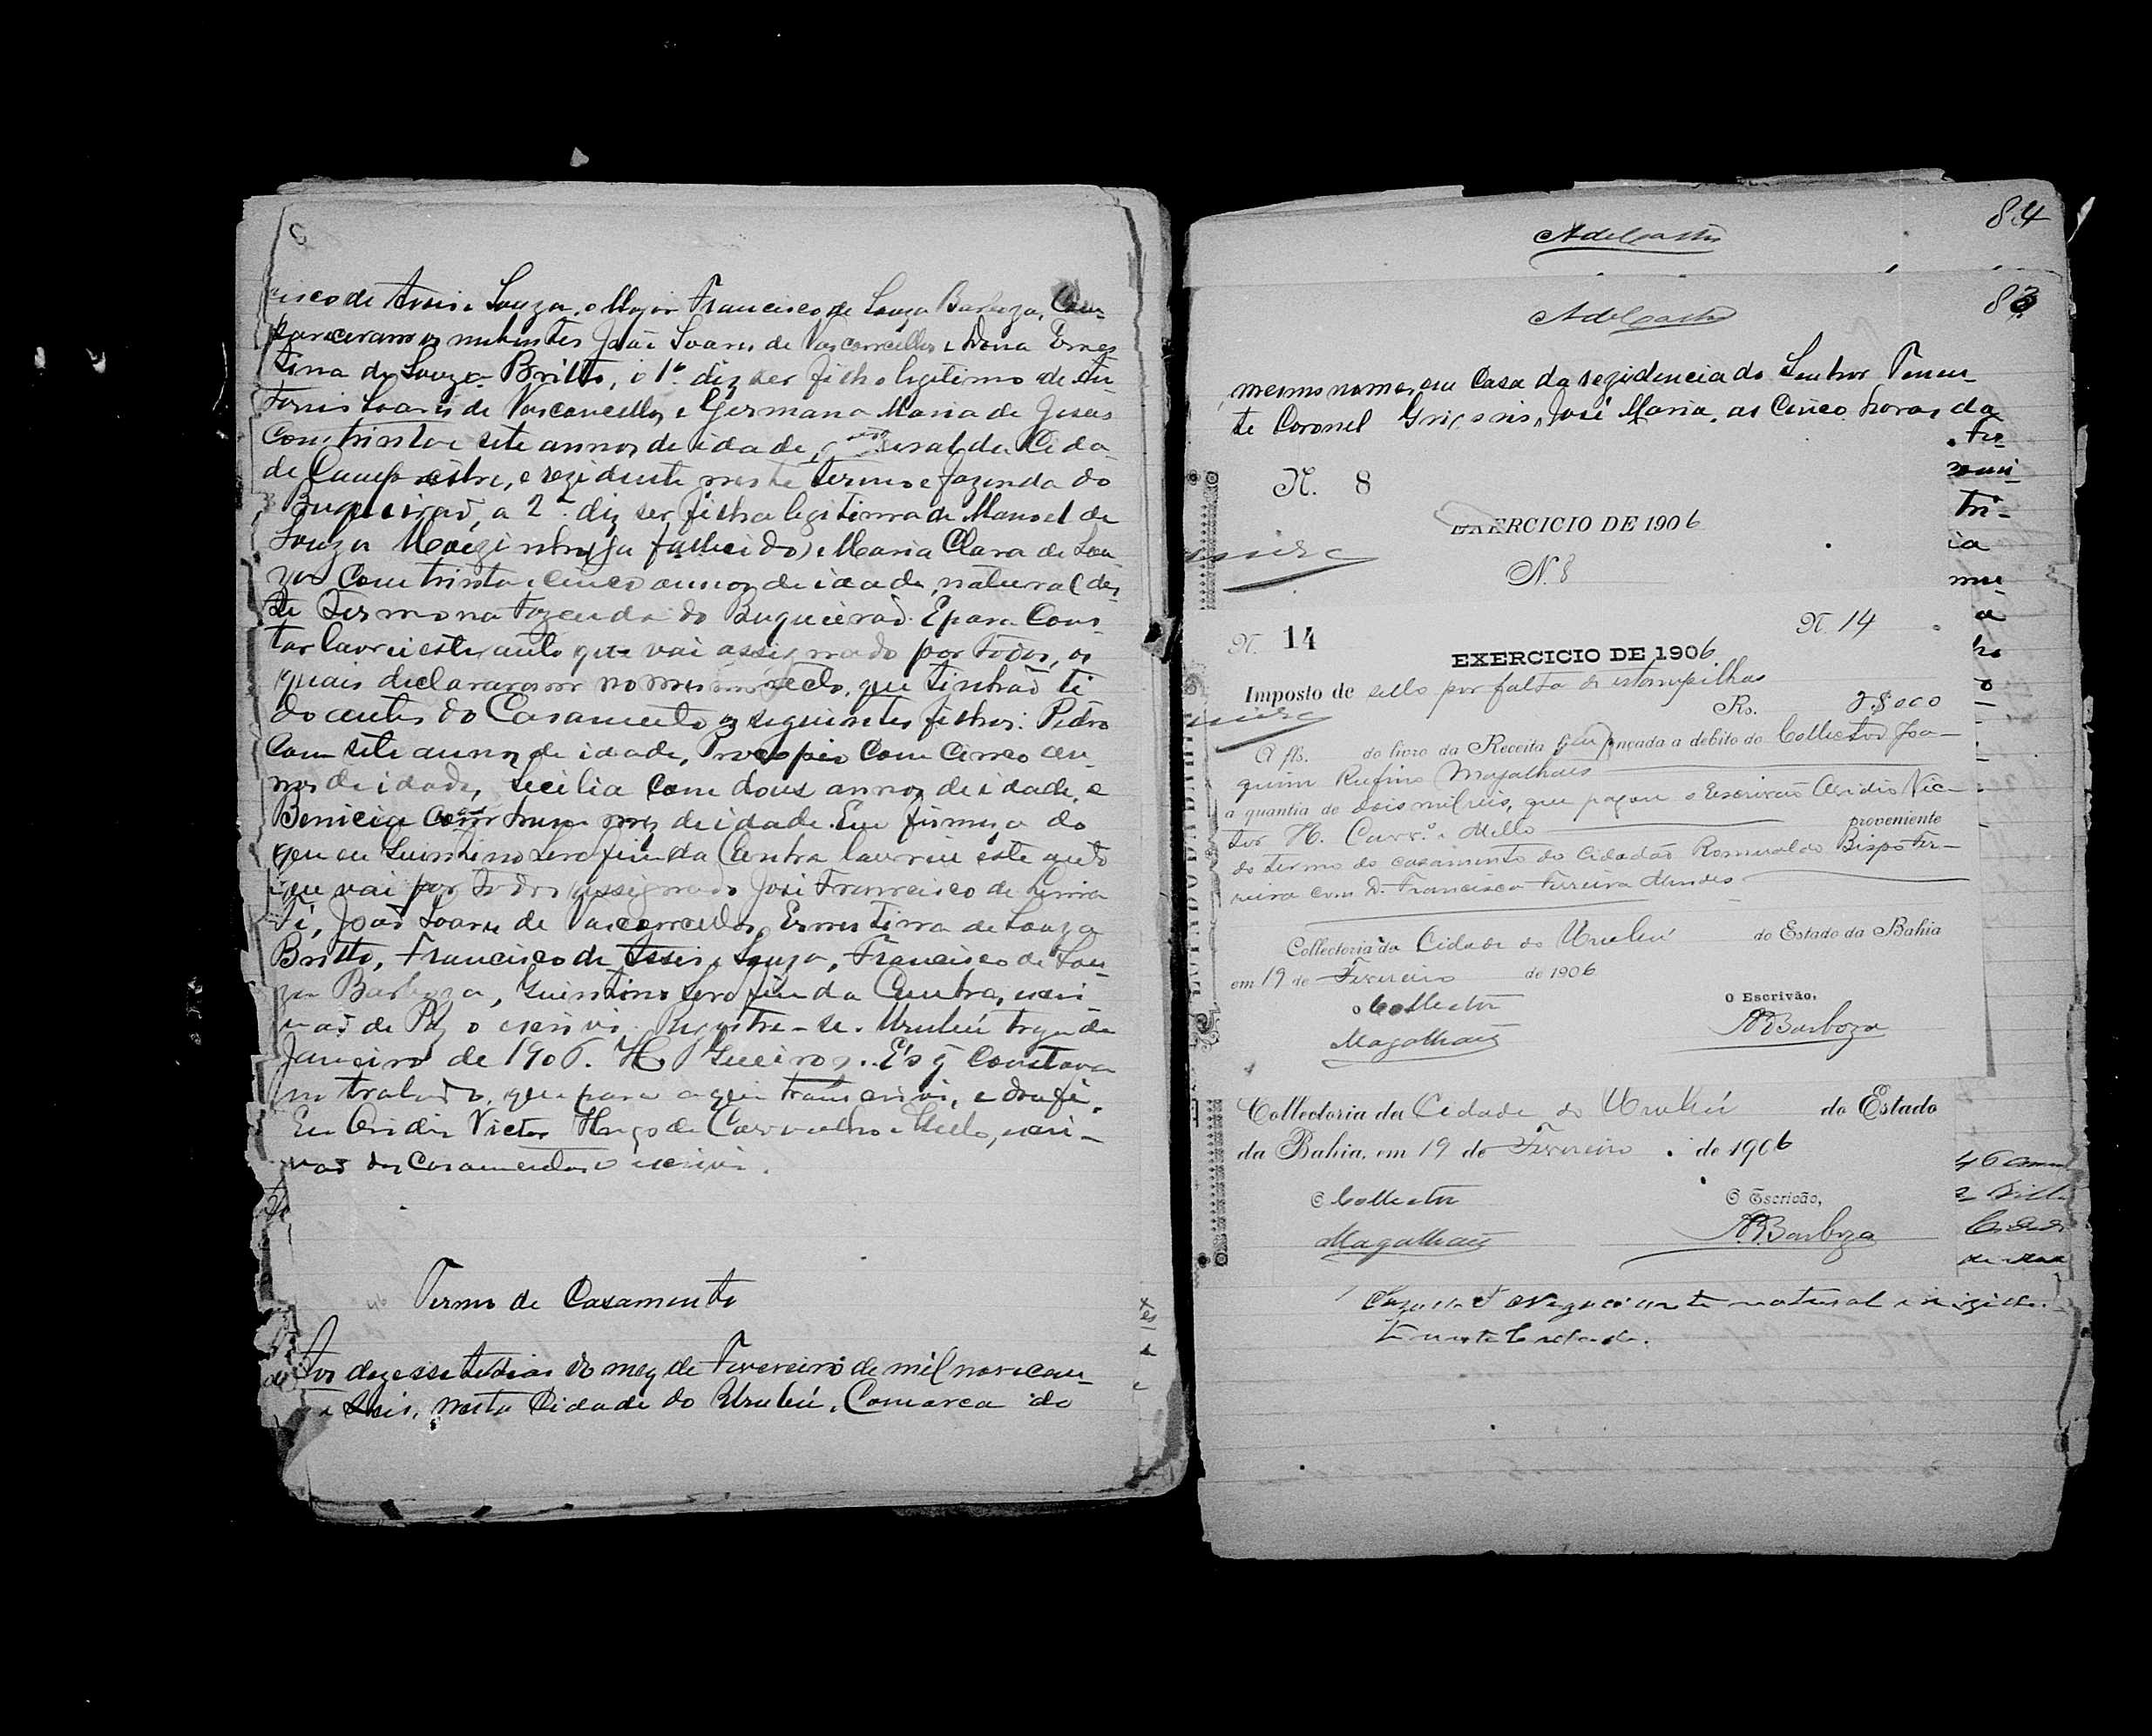 cisco de Assis e Souza, o Major Francisco de Souza Barboza, Com-
pareceram os nubentes João Soares de Vasconcellos e Dona Ernes
tina de Souza Britto, o 1º diz ser filho legitimo de An
tonio Soares de Vasconcellos e Germana Maria de Jesus
com trinta e sete annos de idade, natural da Cida
de Campestre, e rezidente neste termo e fazenda do
Buqueirão, a 2ª diz ser filha legitima de Manoel de
Souza (ja fallecido) e Maria Clara de Sou
za com trinta e cinco annos de idade, natural des
te Termo na Fazenda do Buqueirão. E para Cons-
tar lavrei este auto que vai assignado por todos, os
quais declararam no mesmo acto, que tinhão ti
do antes do Casamento os seguintes filhos: Pedro
com sete annos de idade, Procopio com cinco an-
nos de idade, Secilia com dous annos de idade, e
Benicia com hum mez de idade. Em firmeza do
que eu Quintino Serafim da Cunha lavrei este auto
que vai por todos assignado José Francisco de
João Soares de Vasconcellos, Ernestina de Souza
Britto, Francisco de Assis e Souza, Francisco de Sou-
za Barboza, Quintino Serafim da Cunha, escri-
vão de Paz o escrevi. Registre-se. Urubú treze de
Janeiro de 1906. H. Gueiros. E'o q̃ constava
no traslado, que para aqui transcrevi, e dou fé.
Eu Ovidio Victor Hugo de Carvalho e Mello, escri-
vão dos Casamentos o escrevi.
Termo de Casamento
Aos dezessete dias do mez de Fevereiro de mil novecen-
e Seis, nesta Cidade do Urubú, Comarca do
84
Adelcastro
83
Adelcastro
mesmo nome, em Casa da rezidencia do Senhor Tenen-
te Coronel José Maria, as Cinco horas da
N. 8
EXERCICIO DE 1906
N. 8
N. 14
N. 14
EXERCICIO DE 1906
Imposto de sello por falta de estampilhas
Rs. 2$000
A fls. do livro da Receita fica lançada a debito do Collector Joa-
quim Rufino Magalhães
a quantia de dois mil reis, que pagou o Escrivão Ovidio Vic-
tor H. Carv.º e Mello proveniente
do termo de casamento do cidadão Romualdo Bispo Fer-
reira com D. Francisca Ferreira Mendes
Collectoria da Cidade do Urubú do Estado da Bahia
em 19 de Fevereiro de 1906
O Collector
O Escrivão,
Magalhães
Barboza
Collectoria da Cidade do Urubú do Estado
da Bahia, em 19 de Fevereiro de 1906
O Collector
O Escrivão,
Magalhães
Barboza
Negociante natural e rezidem-
te nesta Cidade.